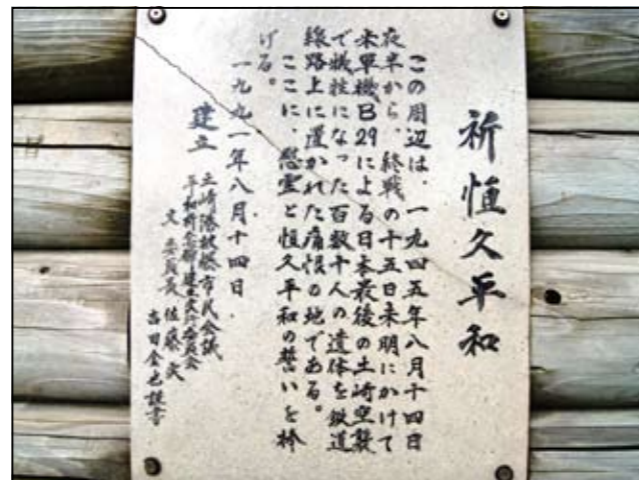 祈恒久平和
この周辺は、一九四五年八月十四日
夜半から、終戦の十五日未明にかけて
米軍機B29による日本最後の土崎空襲
で犠牲になった百数十人の遺体を鉄道
線路上に置かれた痛恨の地である。
ここに、慰霊と恒久平和の誓いを捧
げる。
一九九一年八月十四日
建立
土崎港被爆市民会議
平和祈念碑建立実行委員会
文 委員長 佐藤